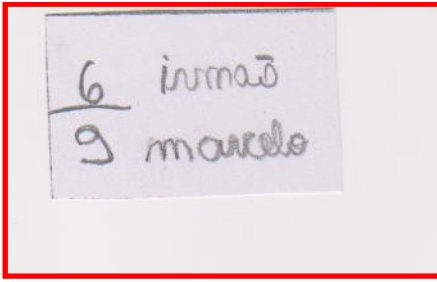 6 irmaõ
9 marcelo